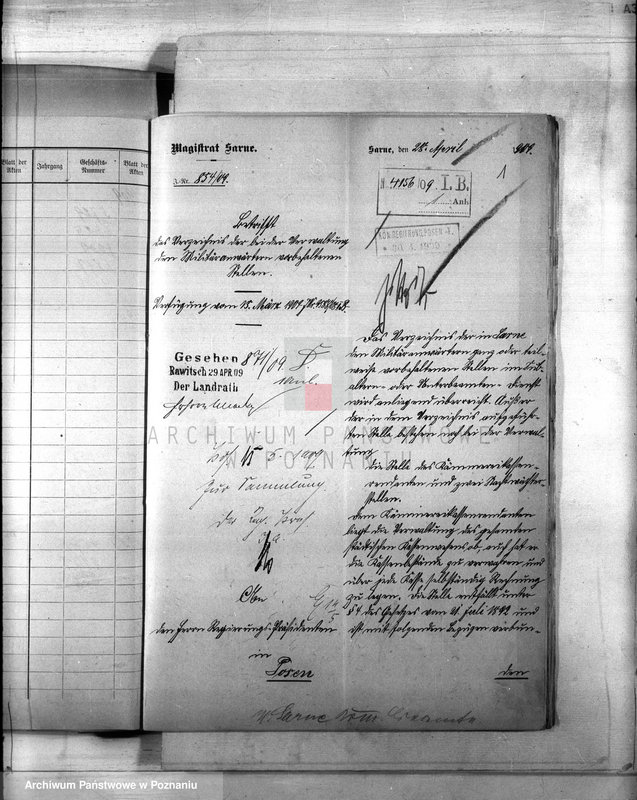 Blatt der Akten
Jahrgang
Geschäfts-Nummer
Blatt der Akten
Magistrat Sarne.
J.-Nr. 854/09.
Sarne, den 28. April 1909.
1
N. 4156/09 I.B.
Anl.
Betrifft
das Verzeichnis der bei der Verwaltung
den Militäranwärtern vorbehaltenen
Stellen.
Verfügung vom 18. März 1909
Gesehen 871/09
Rawitsch 29 APR. 09
Der Landrath
zur Sammlung
Der Reg. Präs.
den Herrn Regierungs-Präsidenten
in
Posen
Das Verzeichnis der in Sarne
den Militäranwärtern ganz oder teil-
weise vorbehaltenen Stellen im Sub-
altern- oder Unterbeamten-dienst
wird anliegend überreicht. Außer
der in dem Verzeichnis aufgeführ-
ten Stelle bestehen noch bei der Verwal-
tung
die Stelle des Kämmereikassen-
rendanten und zwei Nachtwächter-
stellen.
Dem Kämmereikassenrendanten
liegt die Verwaltung des gesamten
städtischen Kassenwesens ob, auch hat er
die Kassenbestände zu verwahren und
über jede Kasse selbständig Rechnung
zu legen. Die Stelle entfällt unter
§ 4 des Gesetzes vom 21. Juli 1892 und
ist mit folgenden Bezügen verbun-
den
ARCHIWUM PAŃSTWOWE
W POZNANIU
Archiwum Państwowe w Poznaniu
Archiwum Państwowe w Poznaniu